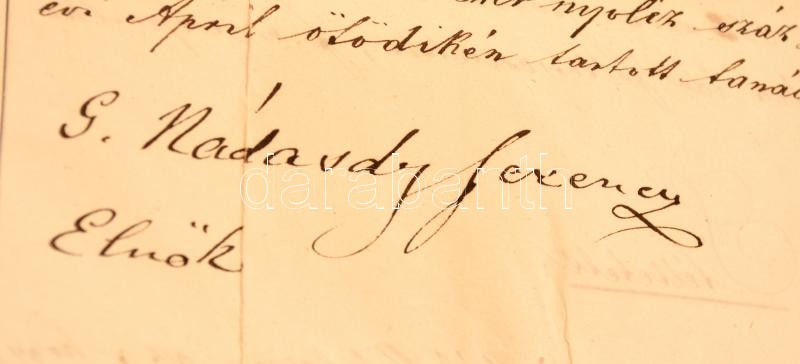 nyolcz száz
évi April ötödikén tartott taná
G. Nádasdy Ferencz
Elnök
darabanth